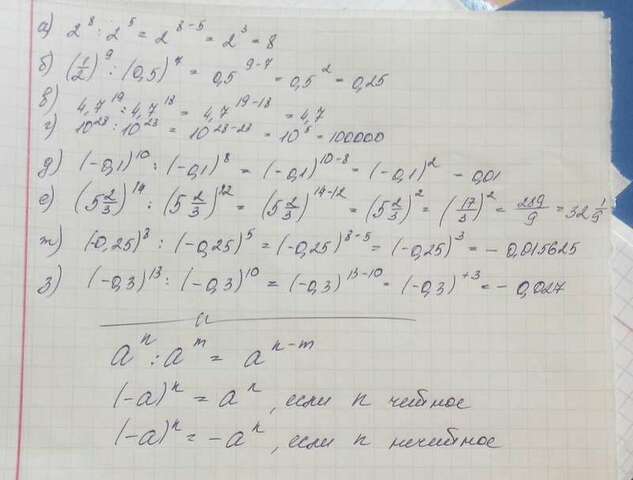 а) 2^8 : 2^5 = 2^{8-5} = 2^3 = 8
б) (1/2)^9 : (0,5)^7 = 0,5^{9-7} = 0,5^2 = 0,25
в) 4,7^{19} : 4,7^{18} = 4,7^{19-18} = 4,7
г) 10^{28} : 10^{23} = 10^{28-23} = 10^5 = 100000
д) (-0,1)^{10} : (-0,1)^8 = (-0,1)^{10-8} = (-0,1)^2 = 0,01
е) (5 2/3)^{14} : (5 2/3)^{12} = (5 2/3)^{14-12} = (5 2/3)^2 = (17/3)^2 = 289/9 = 32 1/9
ж) (-0,25)^8 : (-0,25)^5 = (-0,25)^{8-5} = (-0,25)^3 = -0,015625
з) (-0,3)^{13} : (-0,3)^{10} = (-0,3)^{13-10} = (-0,3)^{+3} = -0,027
a^n : a^m = a^{n-m}
(-a)^n = a^n, если n чётное
(-a)^n = -a^n, если n нечётное